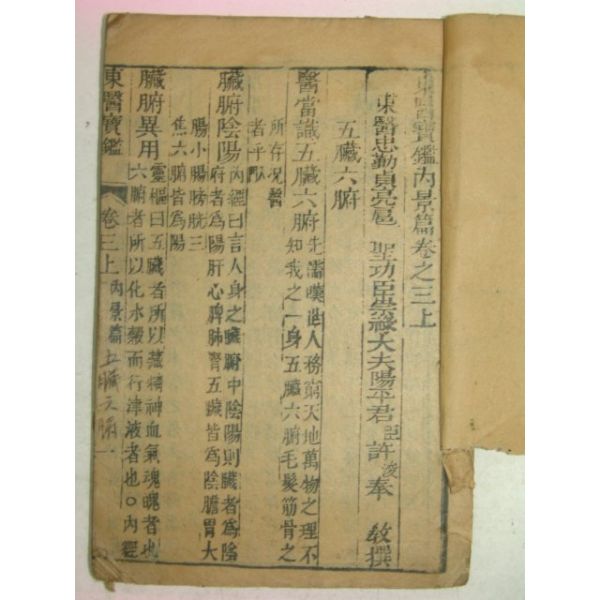 東醫寶鑑內景篇卷之三上
東醫忠勤貞亮扈 聖功臣崇祿大夫陽平君臣許浚奉 敎撰
五臟六腑
醫當識五臟六腑 先儒嘆世人務窮天地萬物之理不
知我之一身五臟六腑毛髮筋骨之
所存況醫
者乎
臟腑陰陽 內經曰言人身之臟腑中陰陽則臟者爲陰
府者爲陽肝心脾肺腎五臟皆爲陰膽胃大
腸小腸膀胱三
焦六腑皆爲陽
臟腑異用 靈樞曰五臟者所以藏精神血氣魂魄者也
六腑者所以化水穀而行津液者也○內經
東醫寶鑑 卷三上 內景篇 五臟六腑 一